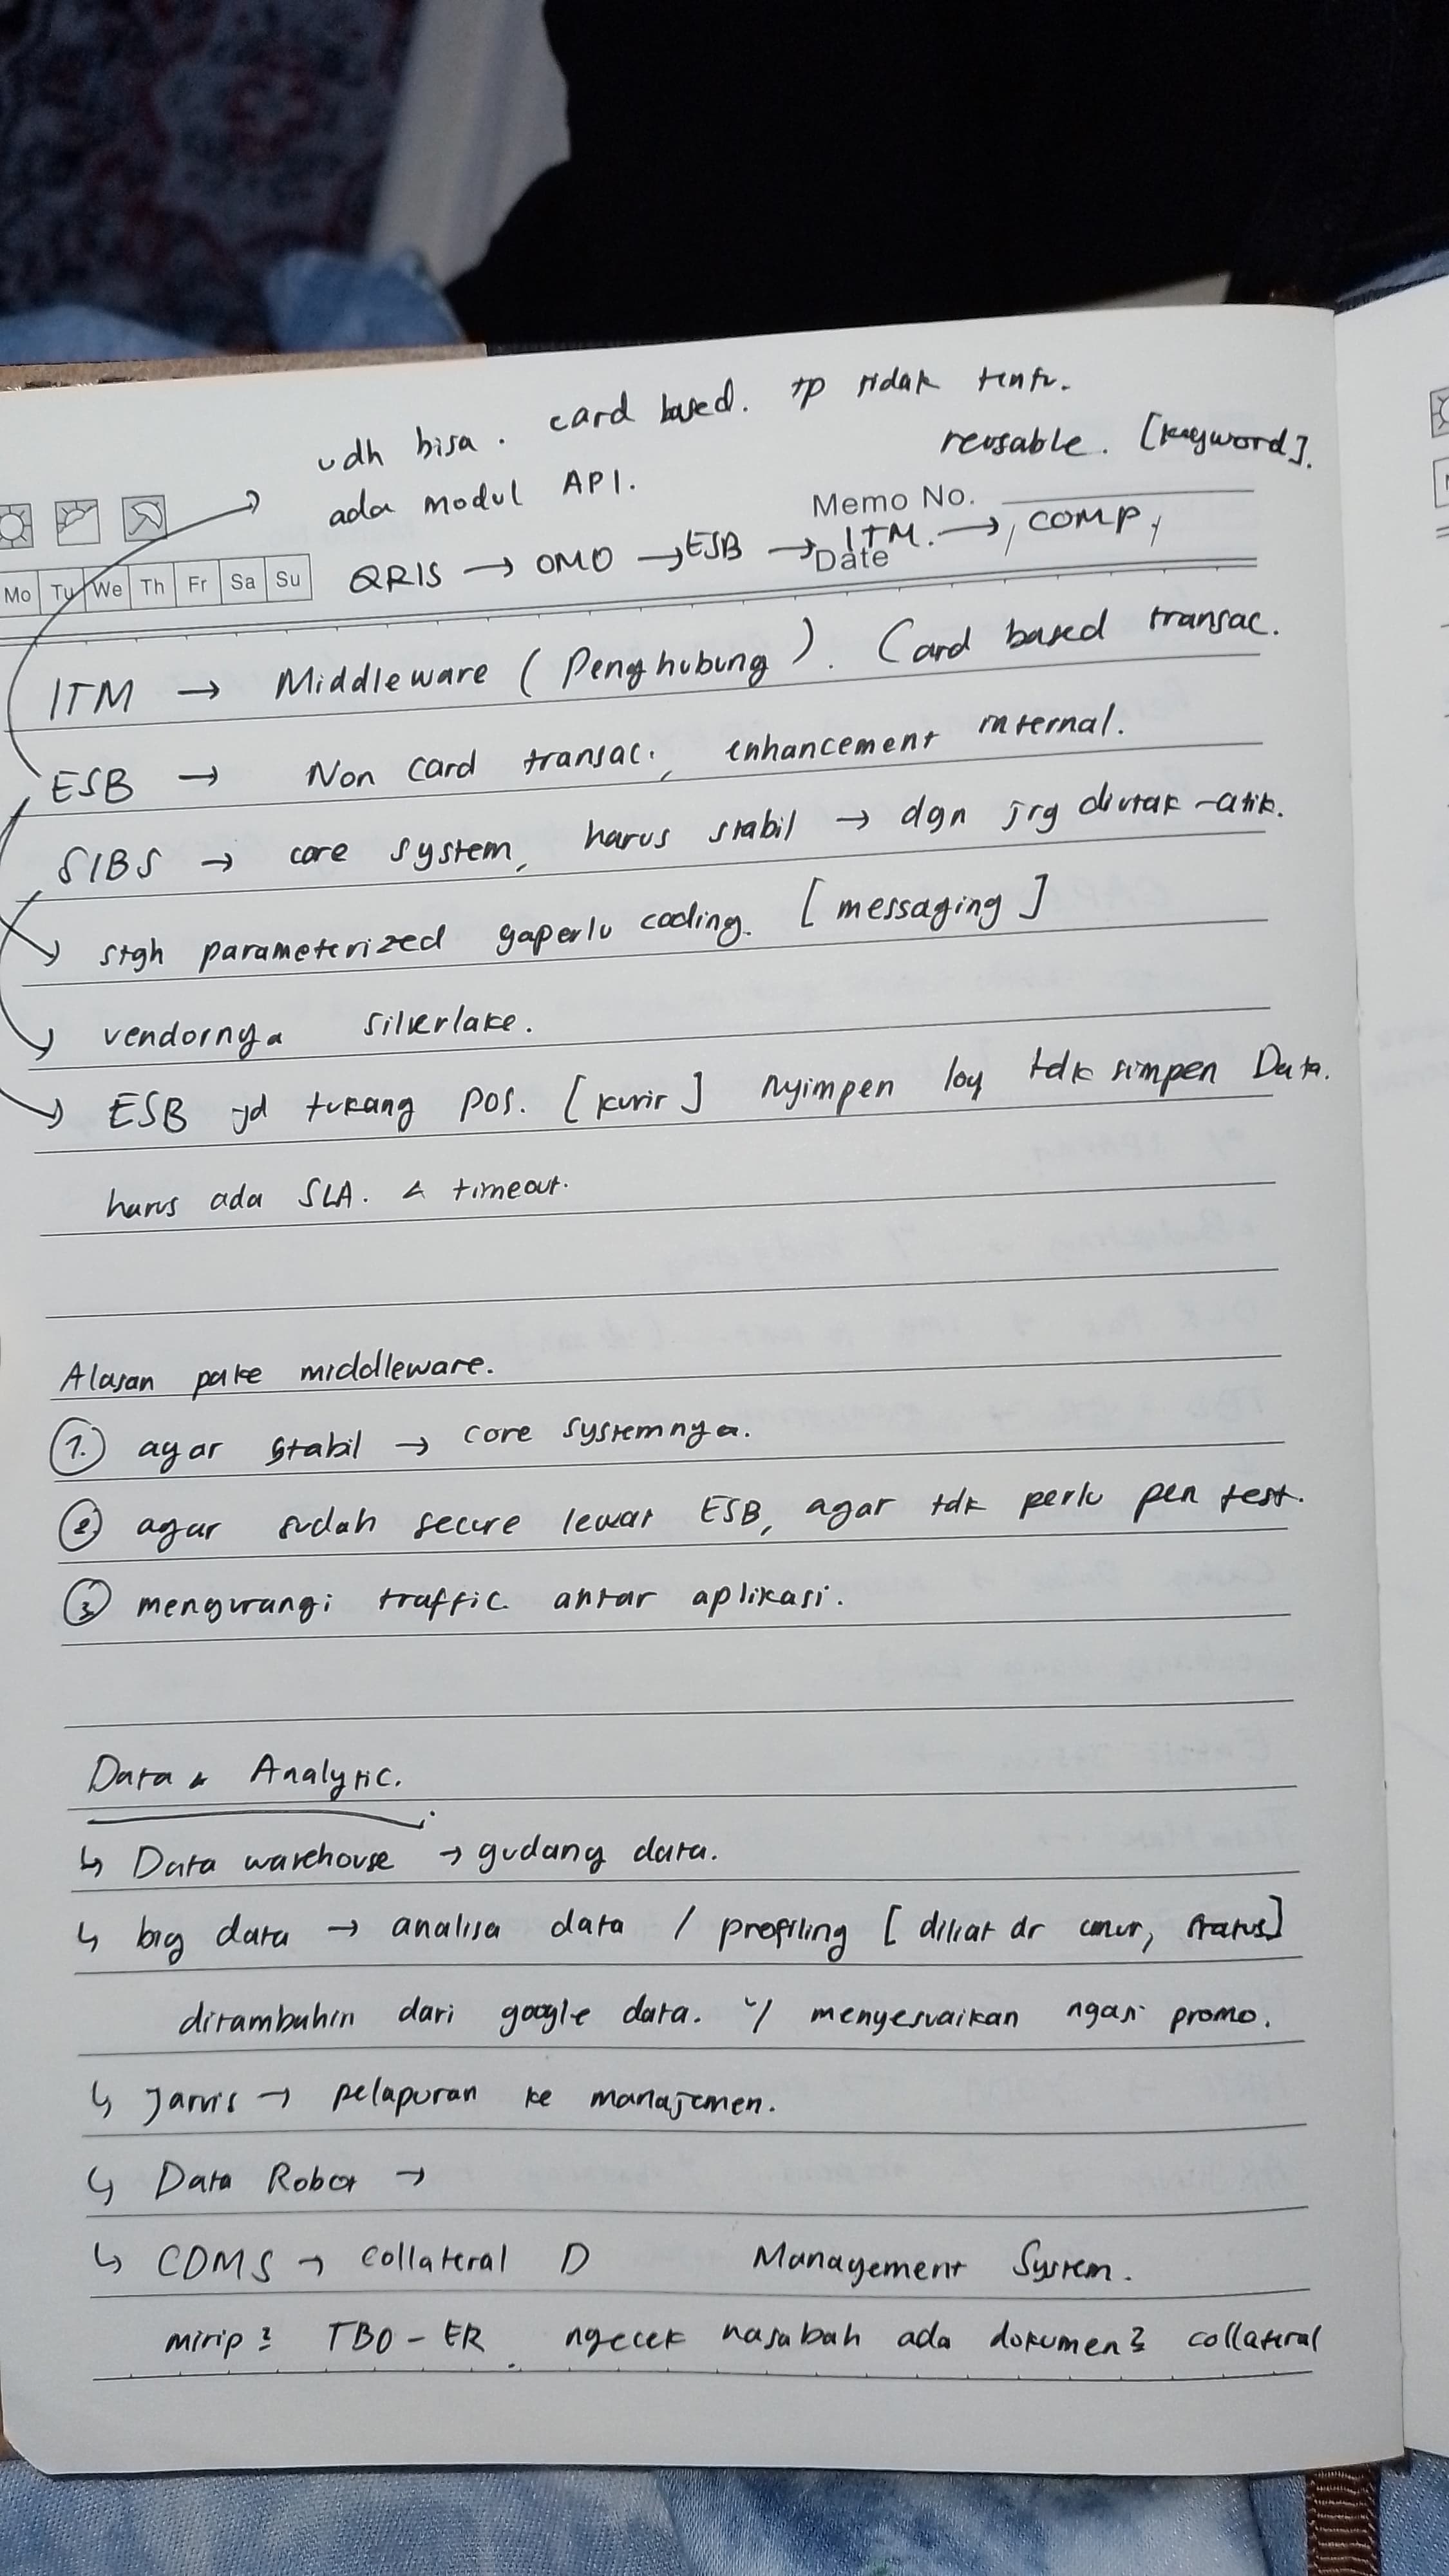 card based. tp tidak tentu.
udh bisa.
reusable. [keyword].
ada modul API.
Memo No.
QRIS → OMO → ESB → ITM. → , COMP,
Date
Mo Tu We Th Fr Sa Su
ITM → Middleware (Penghubung). Card based transac.
ESB → Non Card transac., enhancement internal.
SIBS → core system, harus stabil → dgn jrg diutak-atik.
↳ stgh parameterized gaperlu coding. [messaging]
↳ vendornya silverlake.
↳ ESB jd tukang pos. [kurir] nyimpen log tdk simpen Data.
harus ada SLA. & timeout.
Alasan pake middleware.
1. agar stabil → core systemnya.
2. agar sudah secure lewat ESB, agar tdk perlu pen test.
3 mengurangi traffic antar aplikasi.
Data & Analytic.
↳ Data warehouse → gudang data.
↳ big data → analisa data / profiling [diliat dr umur, status]
ditambahin dari google data. u/ menyesuaikan ngasi promo.
↳ Jarvis → pelaporan ke manajemen.
↳ Data Robot →
↳ CDMS → collateral D Management System.
mirip2 TBO-ER. ngecek nasabah ada dokumen2 collateral